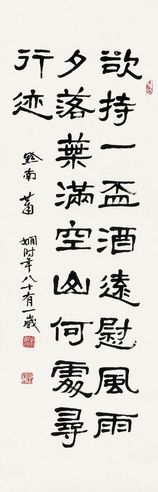 欲持一盃酒遠慰風雨
夕落葉滿空山何處尋
行迹
黔南 蕭
嫻時年八十有一歲